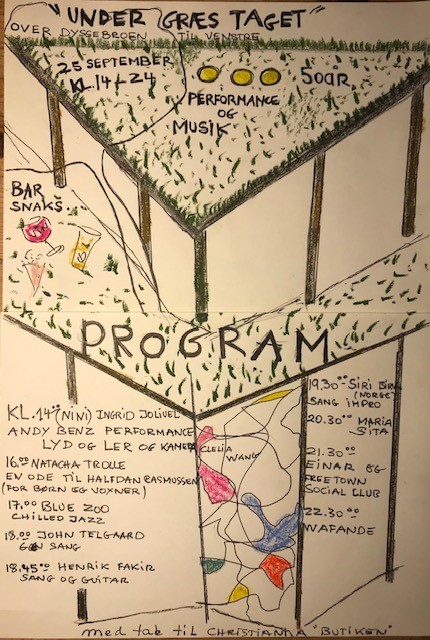 "UNDER GRÆS TAGET"
OVER DYSSEBROEN TIL VENSTRE
25 SEPTEMBER
KL. 14-24
50 ÅR
PERFORMANCE
OG
MUSIK
BAR
SNAKS..
PROGRAM
KL. 14⁰⁰ (NINI) INGRID JOLIVEL
ANDY BENZ PERFORMANCE
LYD OG LER OG KAMERA
CLELIA
WANG
16.⁰⁰ NATACHA TROLLE
EN ODE TIL HALFDAN RASMUSSEN
(FOR BØRN OG VOXNER)
17.⁰⁰ BLUE ZOO
CHILLED JAZZ
18.⁰⁰ JOHN TELGAARD
SANG
18.45⁰⁰ HENRIK FAKIR
SANG OG GUITAR
19.30⁰⁰ SIRI
(NORGE)
SANG IMPRO
20.30⁰⁰ MARIA
SITA
21.30⁰⁰
EINAR OG
FREETOWN
SOCIAL CLUB
22.30⁰⁰
WAFANDE
med tak til CHRISTIANIA "BUTIKEN"